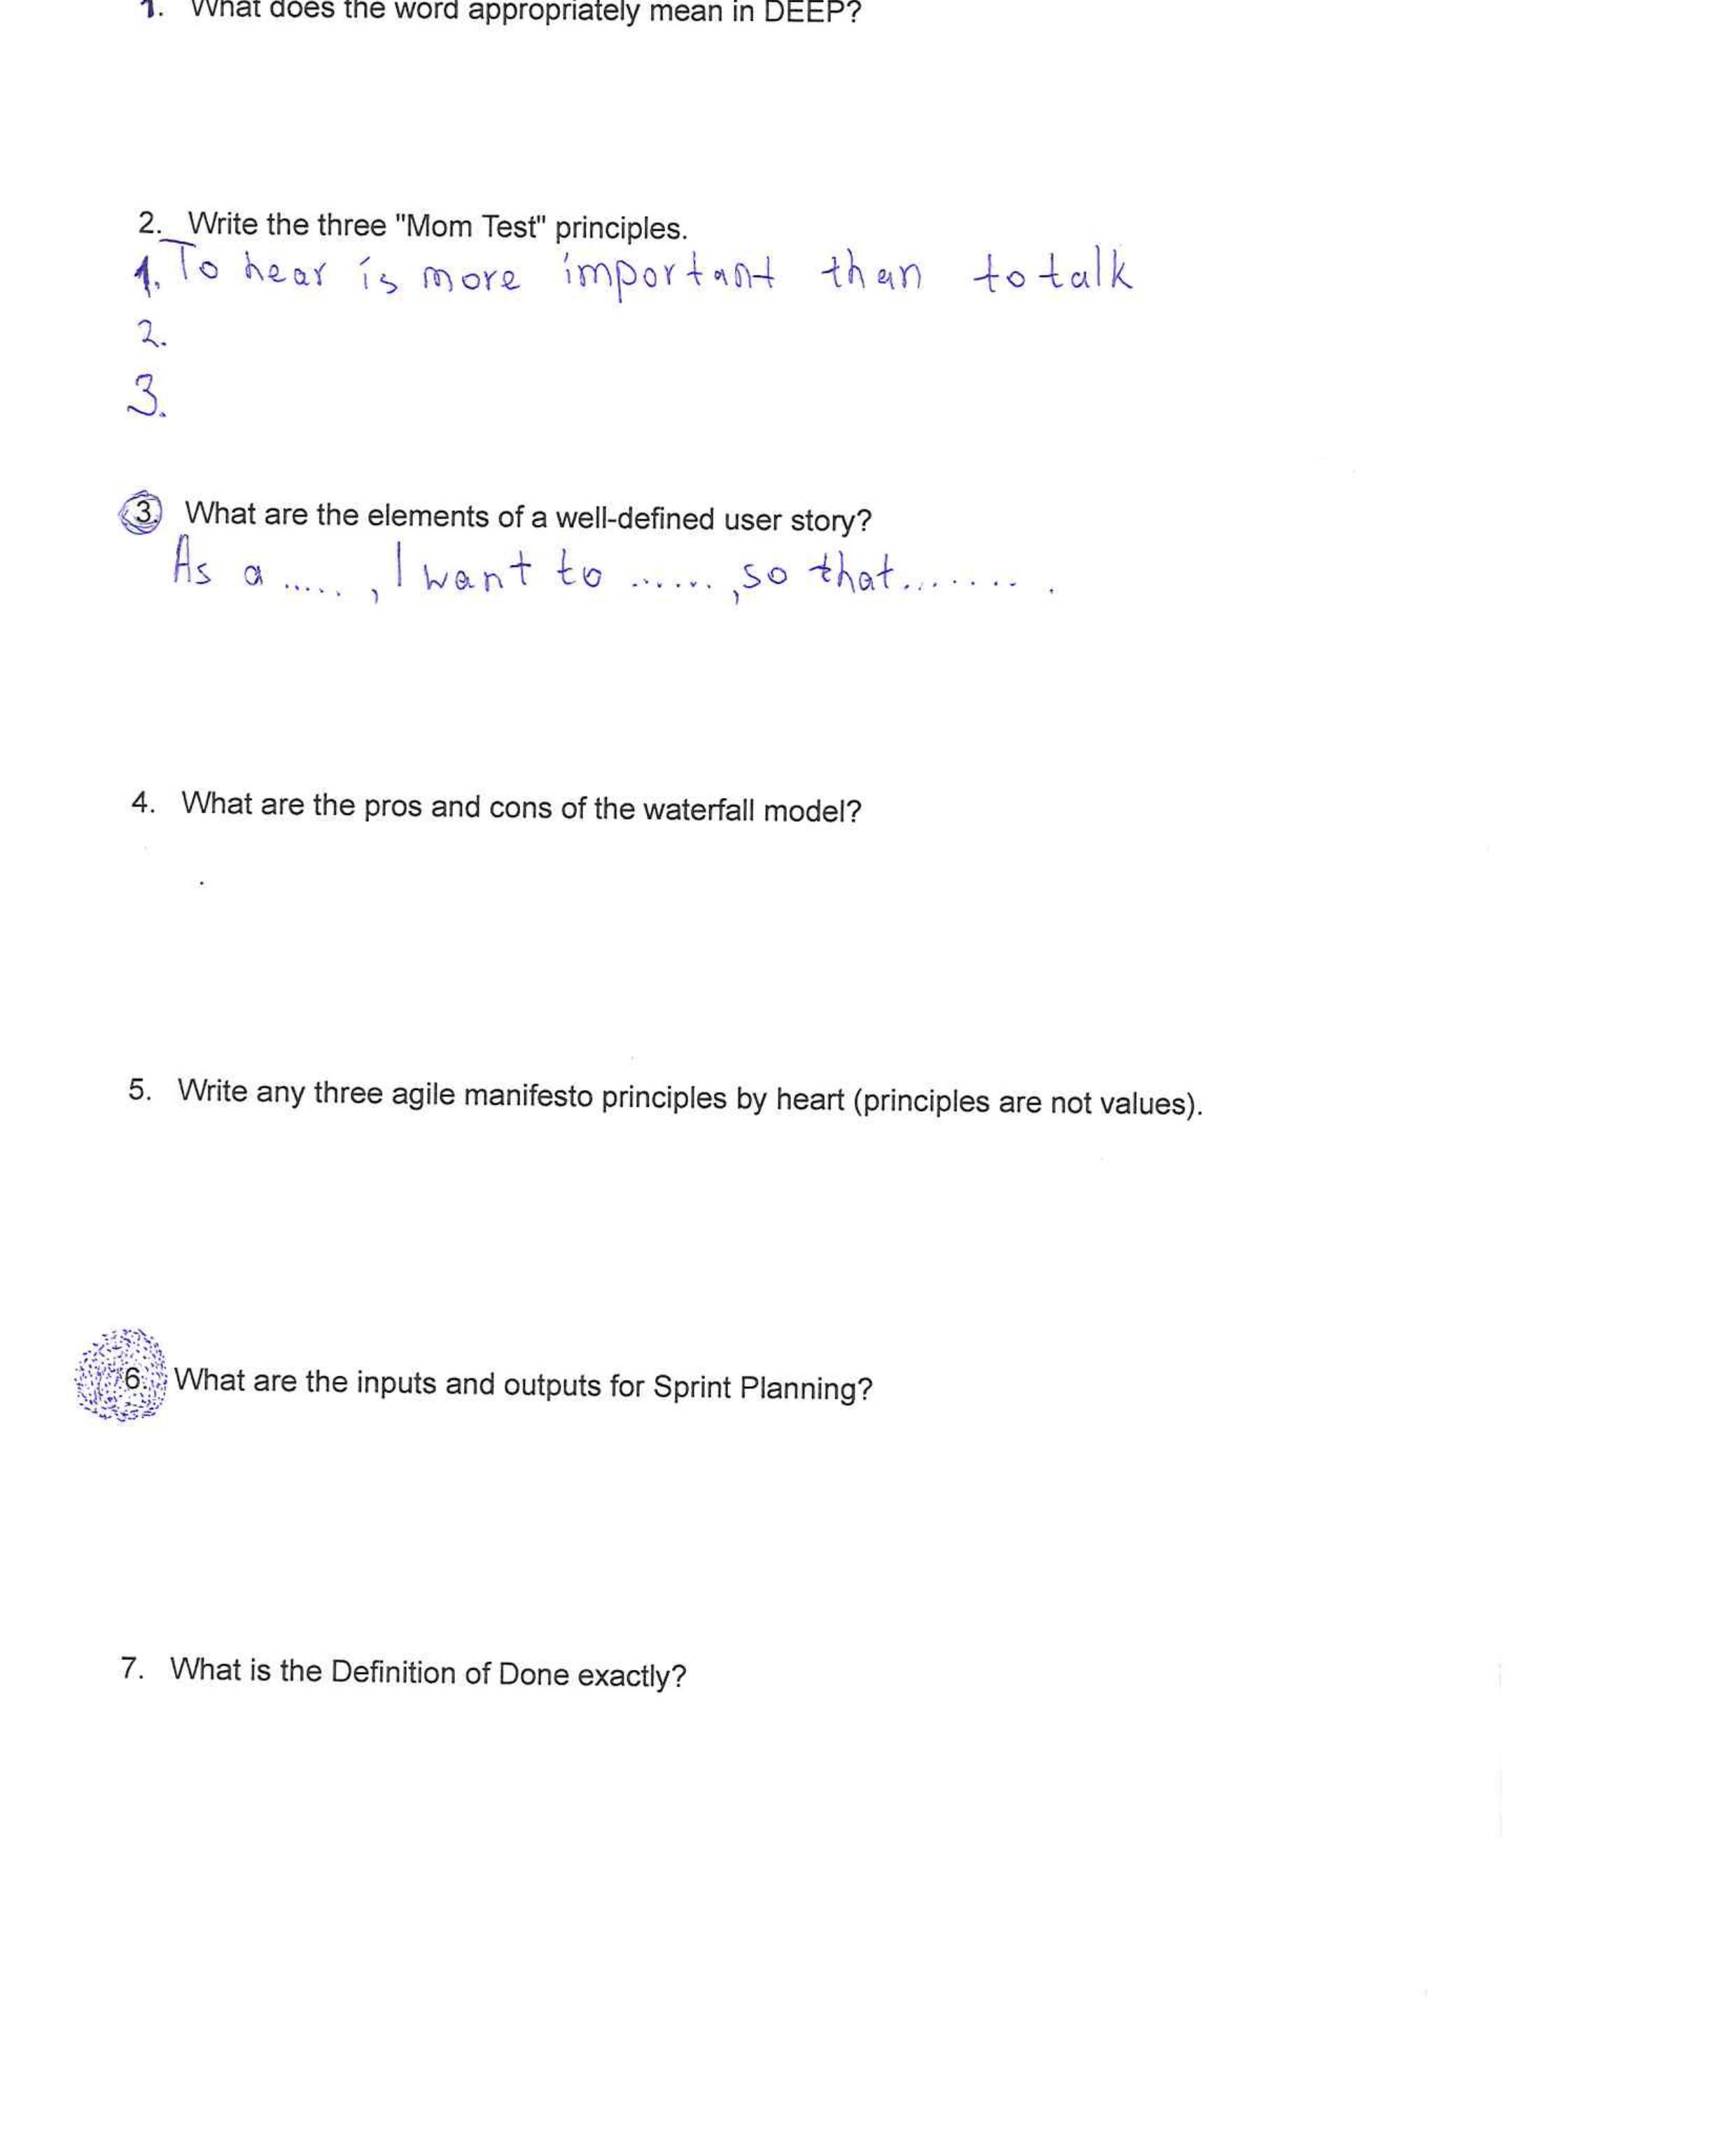 1. What does the word appropriately mean in DEEP?
2. Write the three "Mom Test" principles.
1. To hear is more important than to talk
2.
3.
3. What are the elements of a well-defined user story?
As a ....., I want to ......, so that........ .
4. What are the pros and cons of the waterfall model?
5. Write any three agile manifesto principles by heart (principles are not values).
6. What are the inputs and outputs for Sprint Planning?
7. What is the Definition of Done exactly?